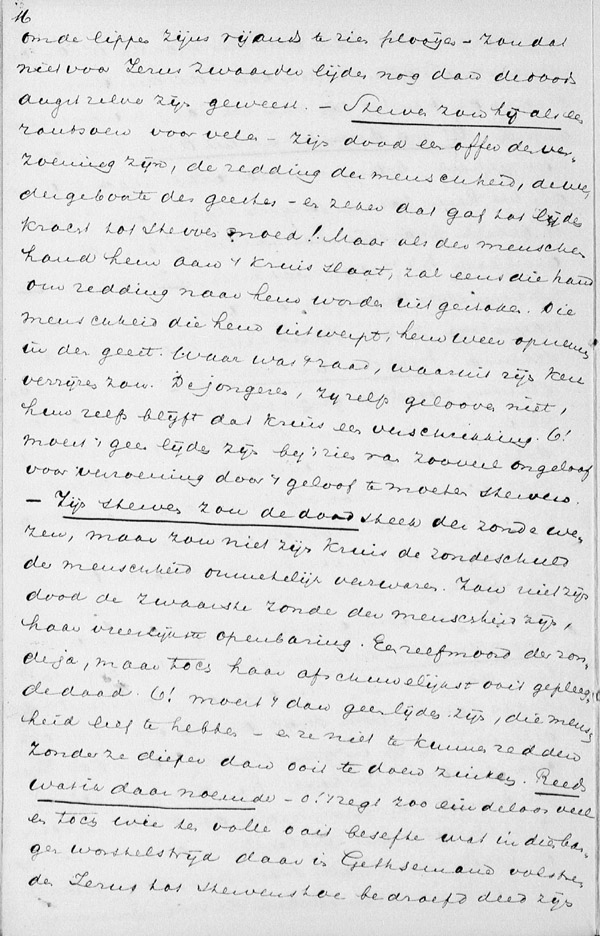 16
om de lippen zijns vijands te zien plooijen – zou dat
niet voor Jezus zwaarder lijden nog dan de doods
angst zelve zijn geweest. – Sterven zou hij als een
rantsoen voor velen – zijn dood een offer der ver-
zoening zijn, de redding der menschheid, de we-
dergeboorte des geestes – en zeker dat gaf tot lijden
kracht tot sterven moed! Maar als der menschen
hand hem aan 't kruis slaat, zal eens die hand
om redding naar hem worden uitgestoken. Die
menschheid die hem uitwerpt, hem weer opnemen
in den geest. Waar was 't zaad, waaruit zijn Ken
verrijzen zou. De jongeren, zij zelfs gelooven niet,
hun zelfs blijft dat kruis een verschrikking. O!
moest 't geen lijden zijn bij 't zien van zooveel ongeloof
voor verzoening door 't geloof te moeten sterven.
– Zijn sterven zou de doodsteek der zonde we-
zen, maar zou niet zijn kruis de zondeschuld
der menschheid onmetelijk verzwaren. Zou niet zijn
dood de zwaarste zonde der menschheid zijn,
haar vreeslijkste openbaring. Een zelfmoord der zon-
de ja, maar toch haar afschuwelijkst ooit gepleeg-
de daad. O! moest 't dan geen lijden zijn, die mensch
heid lief te hebben – en ze niet te kunnen redden
zonder ze dieper dan ooit te doen zinken. Reeds
wat ik daar noemde – o! 't zegt zoo eindeloos veel
en toch wie ten volle ooit besefte wat in die ban-
ger worstelstrijd daar in Gethsemané volstre
den Jezus tot stervenstoe bedroefd deed zijn